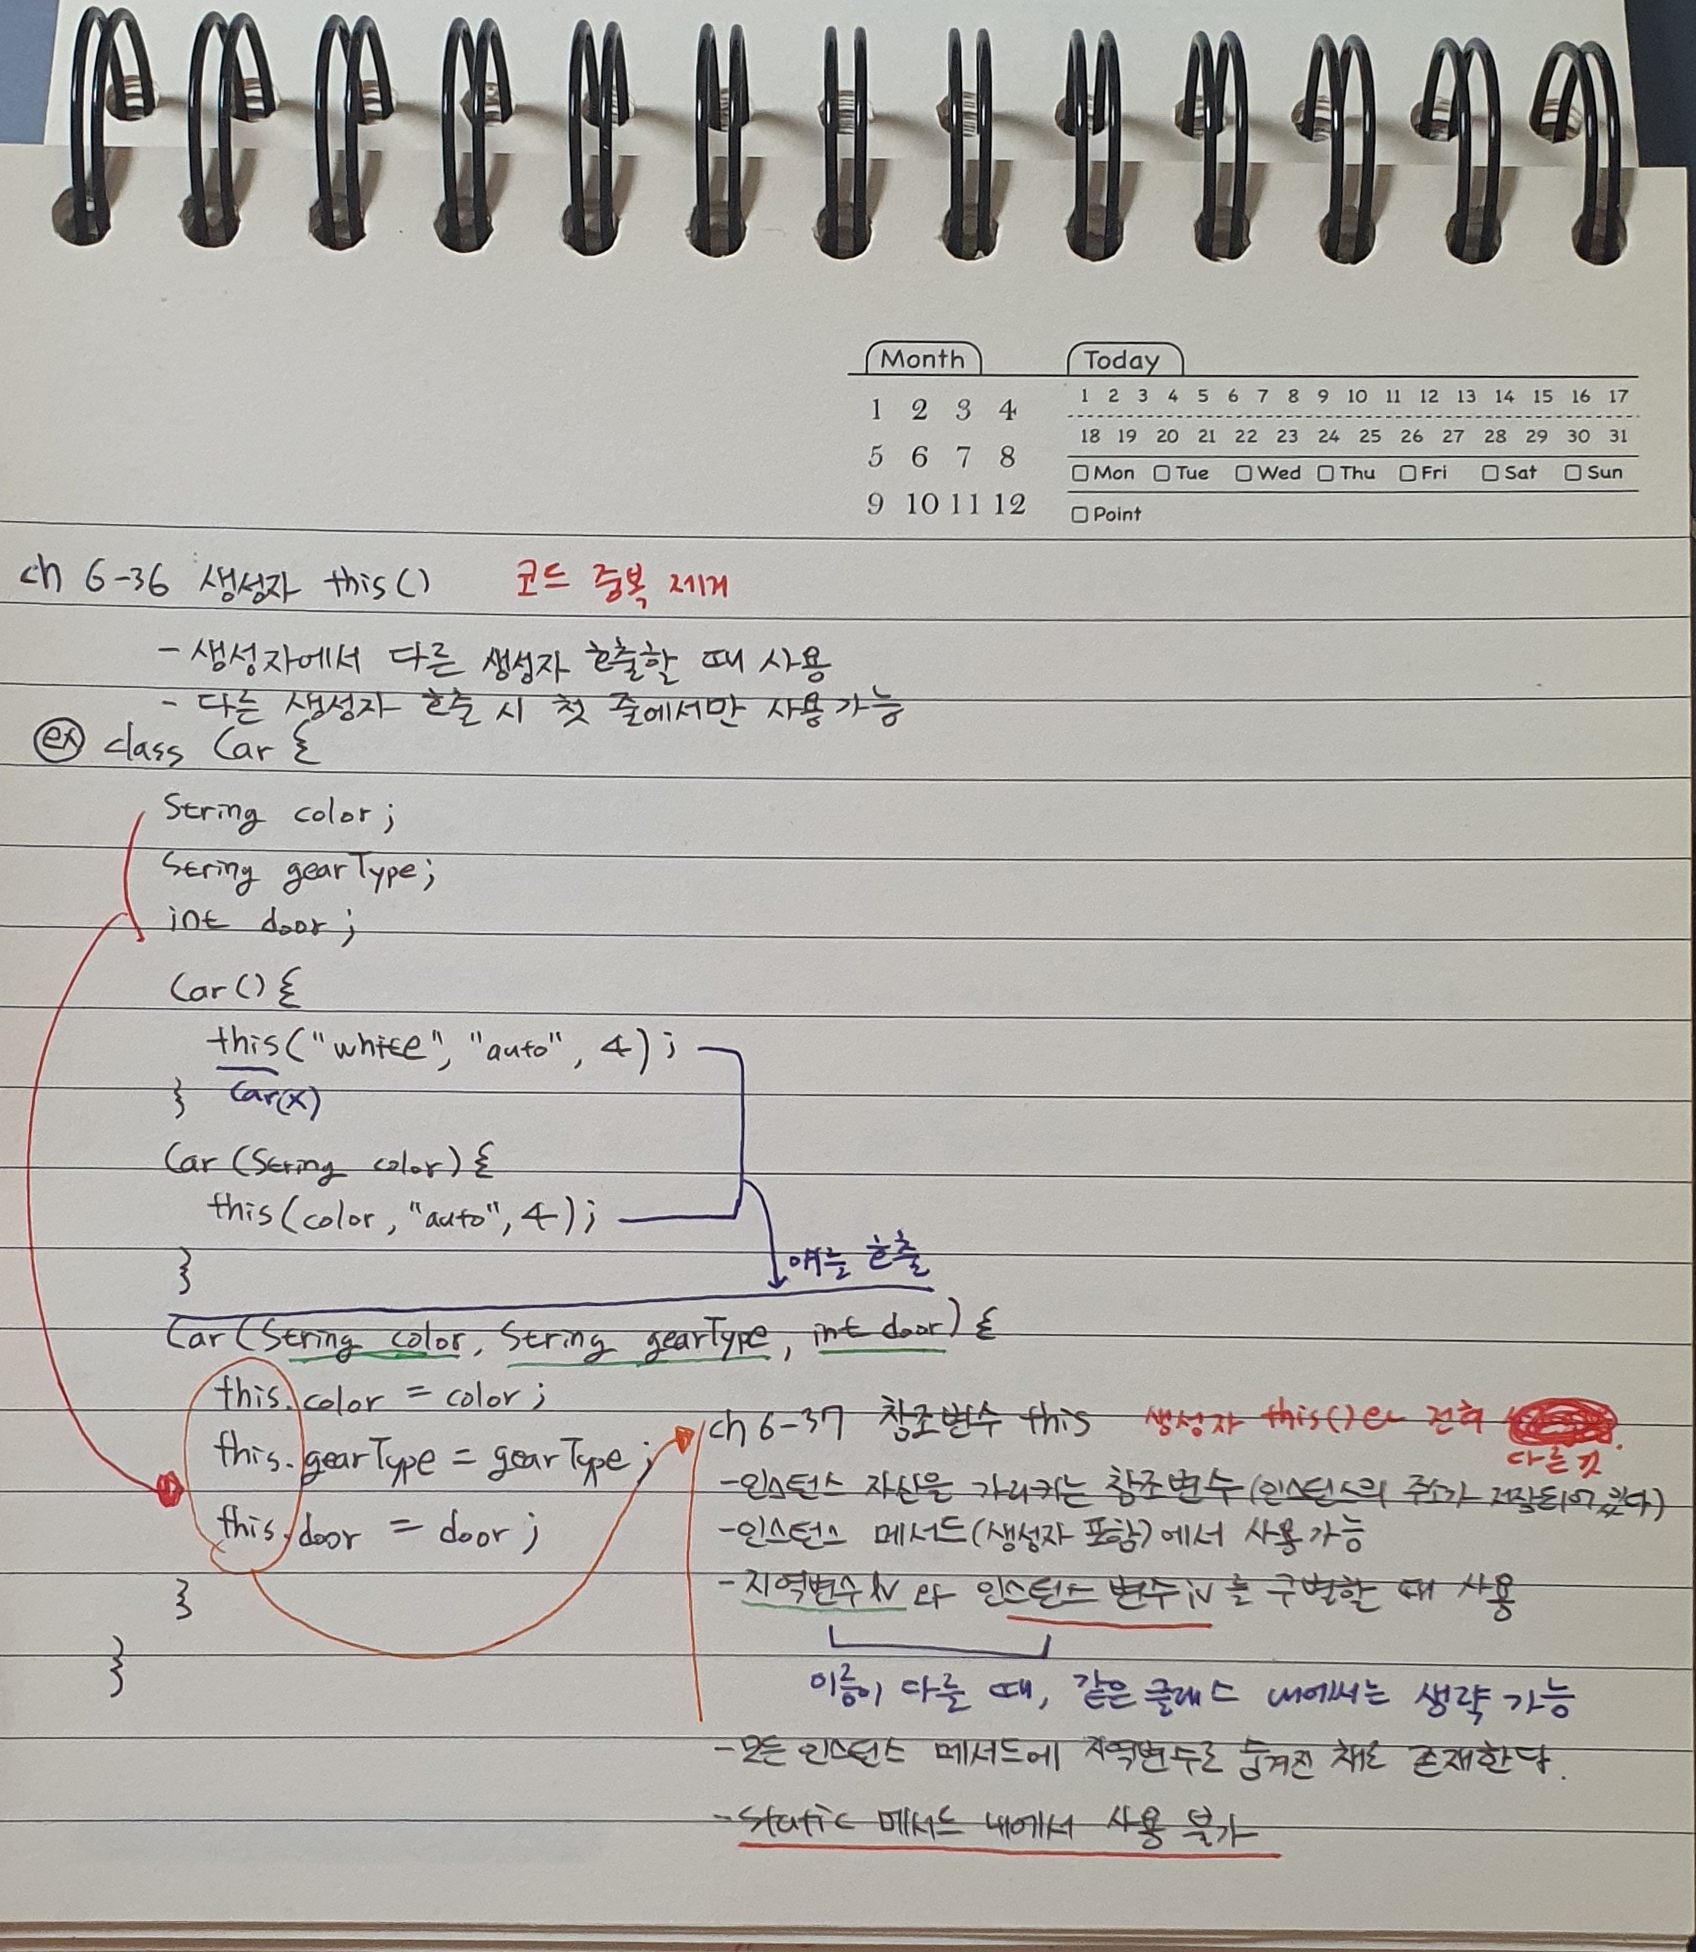 Month Today
1 2 3 4
5 6 7 8
9 10 11 12
1 2 3 4 5 6 7 8 9 10 11 12 13 14 15 16 17
18 19 20 21 22 23 24 25 26 27 28 29 30 31
Mon Tue Wed Thu Fri Sat Sun
Point
ch 6-36 생성자 this() 코드 중복 제거
- 생성자에서 다른 생성자 호출할 때 사용
- 다른 생성자 호출 시 첫 줄에서만 사용가능
ex class Car {
String color;
String gearType;
int door;
Car() {
this("white", "auto", 4);
} Car(x)
Car (String color) {
this(color, "auto", 4);
}
얘를 호출
Car (String color, String gearType, int door) {
this.color = color;
this.gearType = gearType;
this.door = door;
}
}
ch 6-37 참조변수 this 생성자 this()와 전혀
다른 것
- 인스턴스 자신을 가리키는 참조변수 (인스턴스의 주소가 저장되어있다)
- 인스턴스 메서드(생성자 포함)에서 사용가능
- 지역변수 lv 와 인스턴스 변수 iv 를 구별할 때 사용
이름이 다를 때, 같은 클래스 내에서는 생략 가능
- 모든 인스턴스 메서드에 지역변수로 숨겨진 채로 존재한다.
- static 메서드 내에서 사용 불가